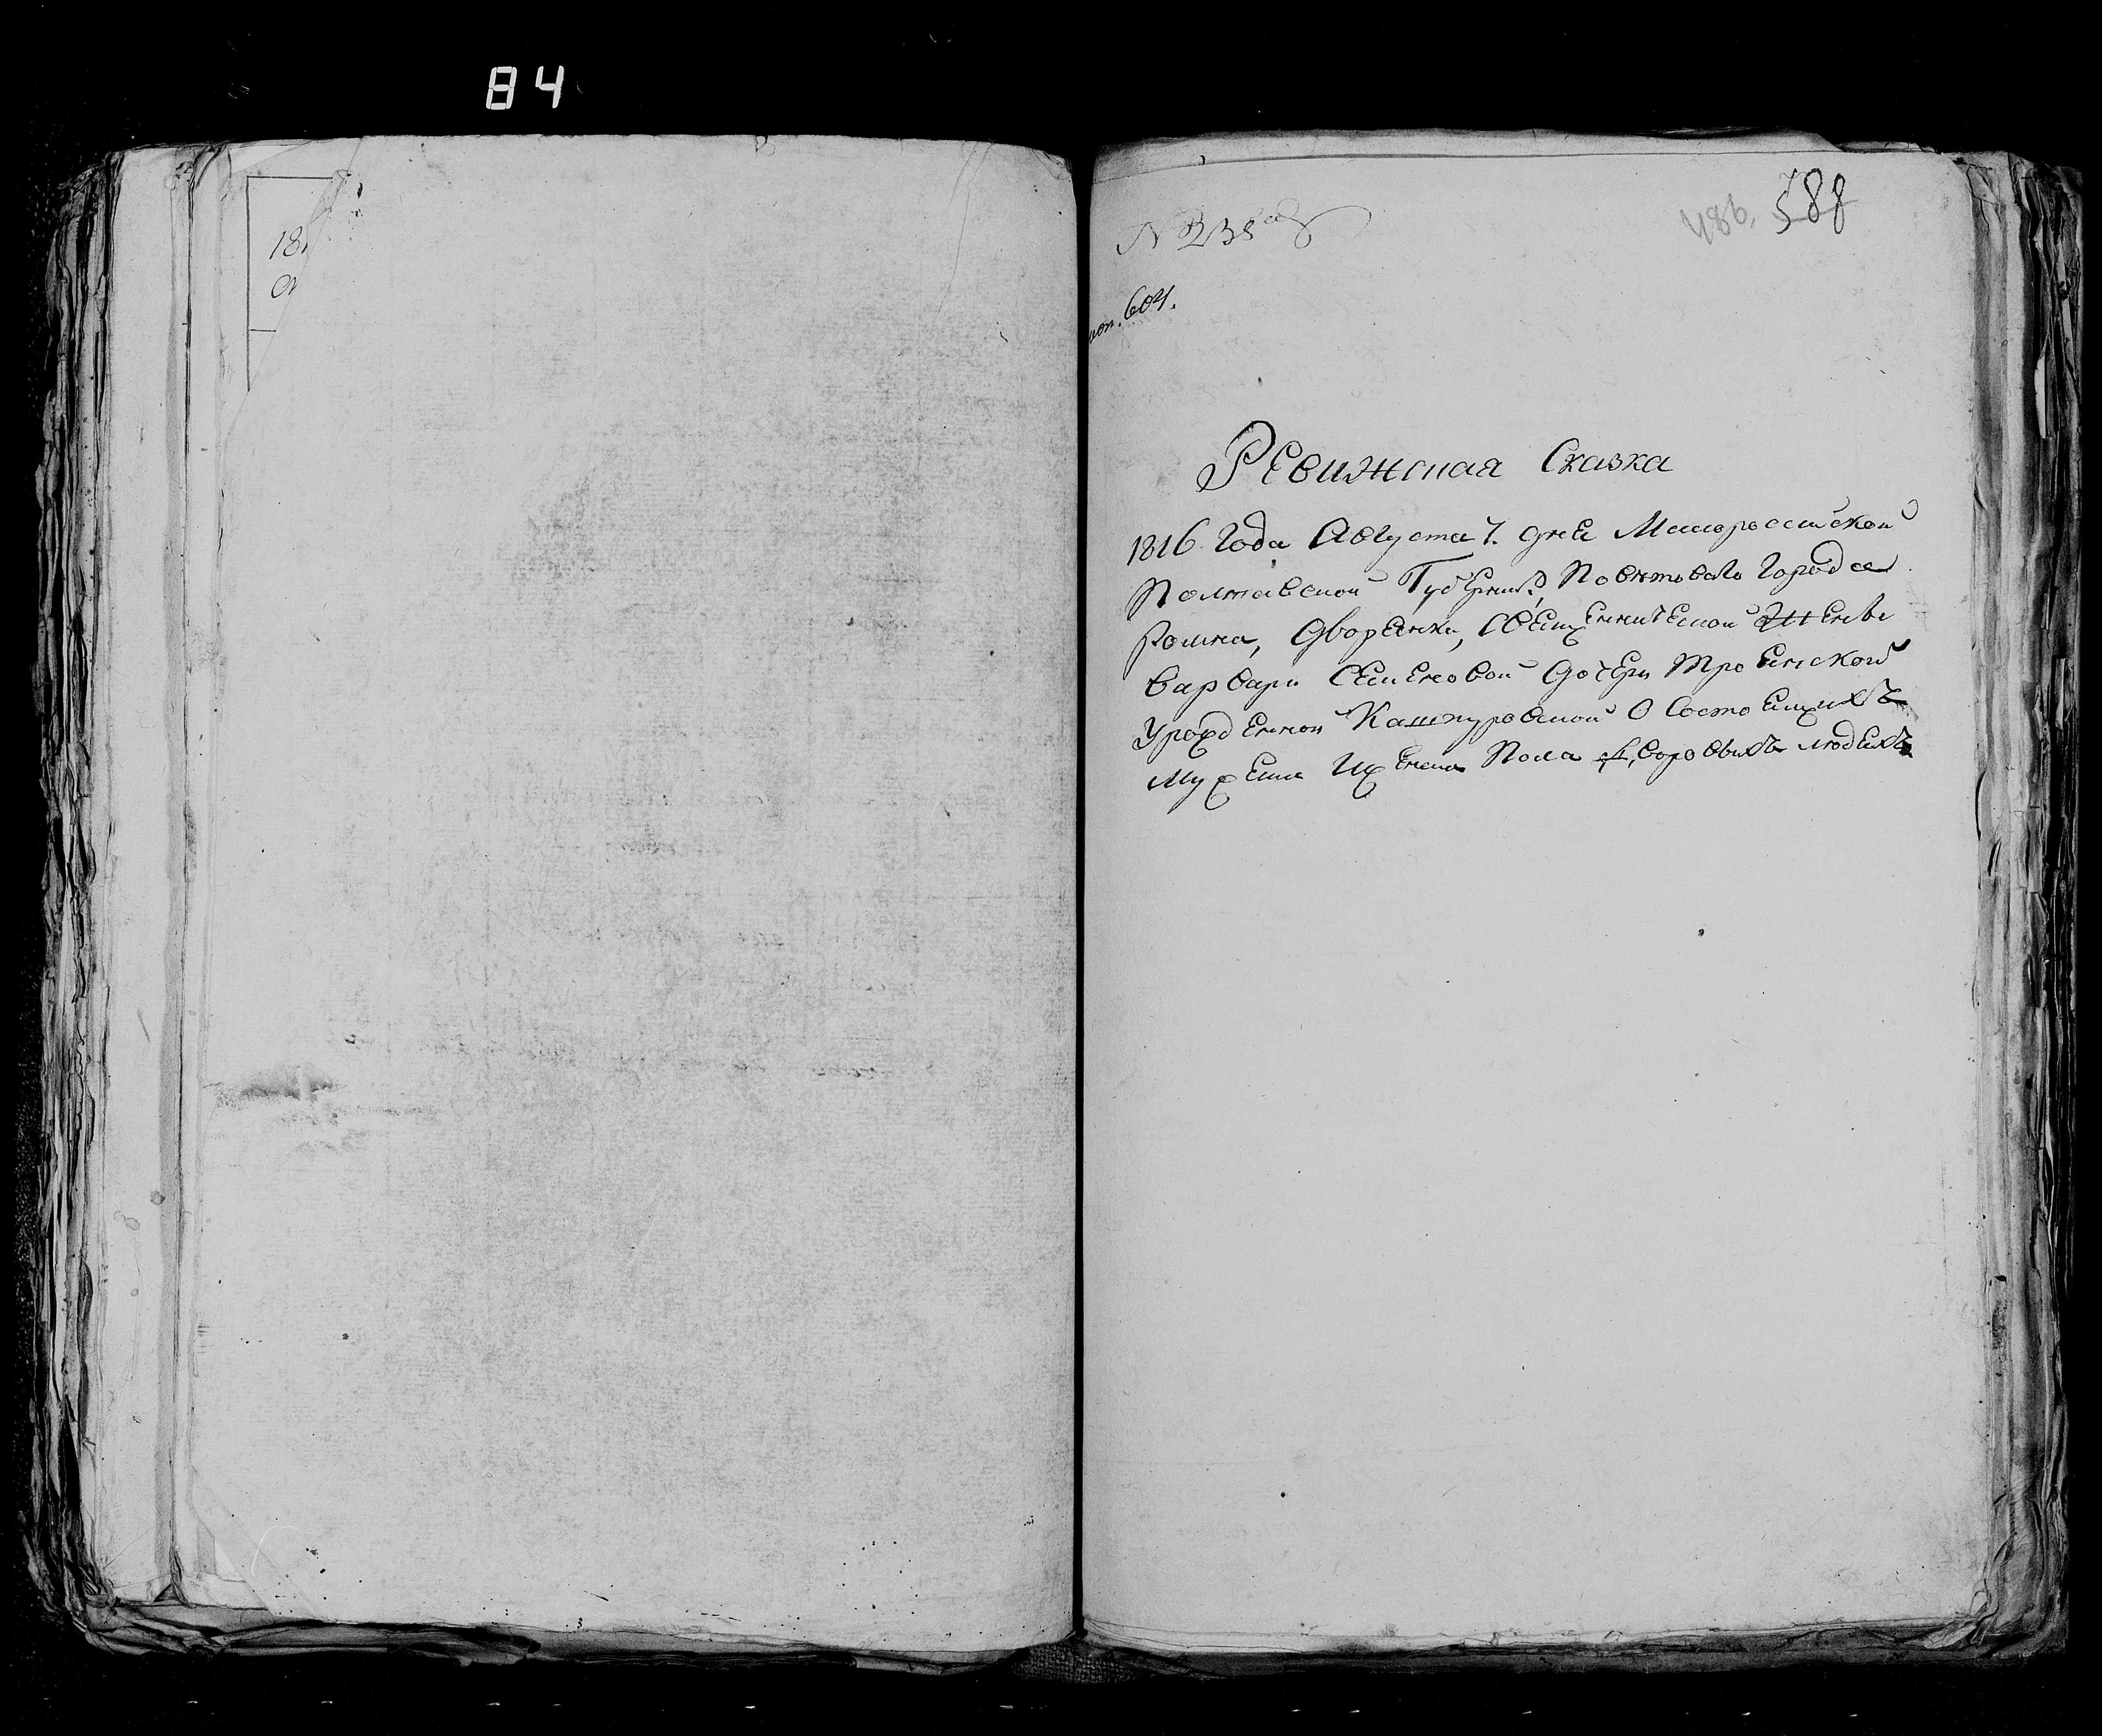 84
18
№ 238
486. 588
604.
Ревижская Сказка
1816 Года Августа 7. дня Малороссийской
Полтавской Губернии, Поветоваго Города
Ромна, Дворянки, Священнической Жены
Варвари Семеновой дочери Троянской
Урожденной Кашпуровской О Состоящихъ
Мужеска Иженска Пола дворовыхъ людяхъ